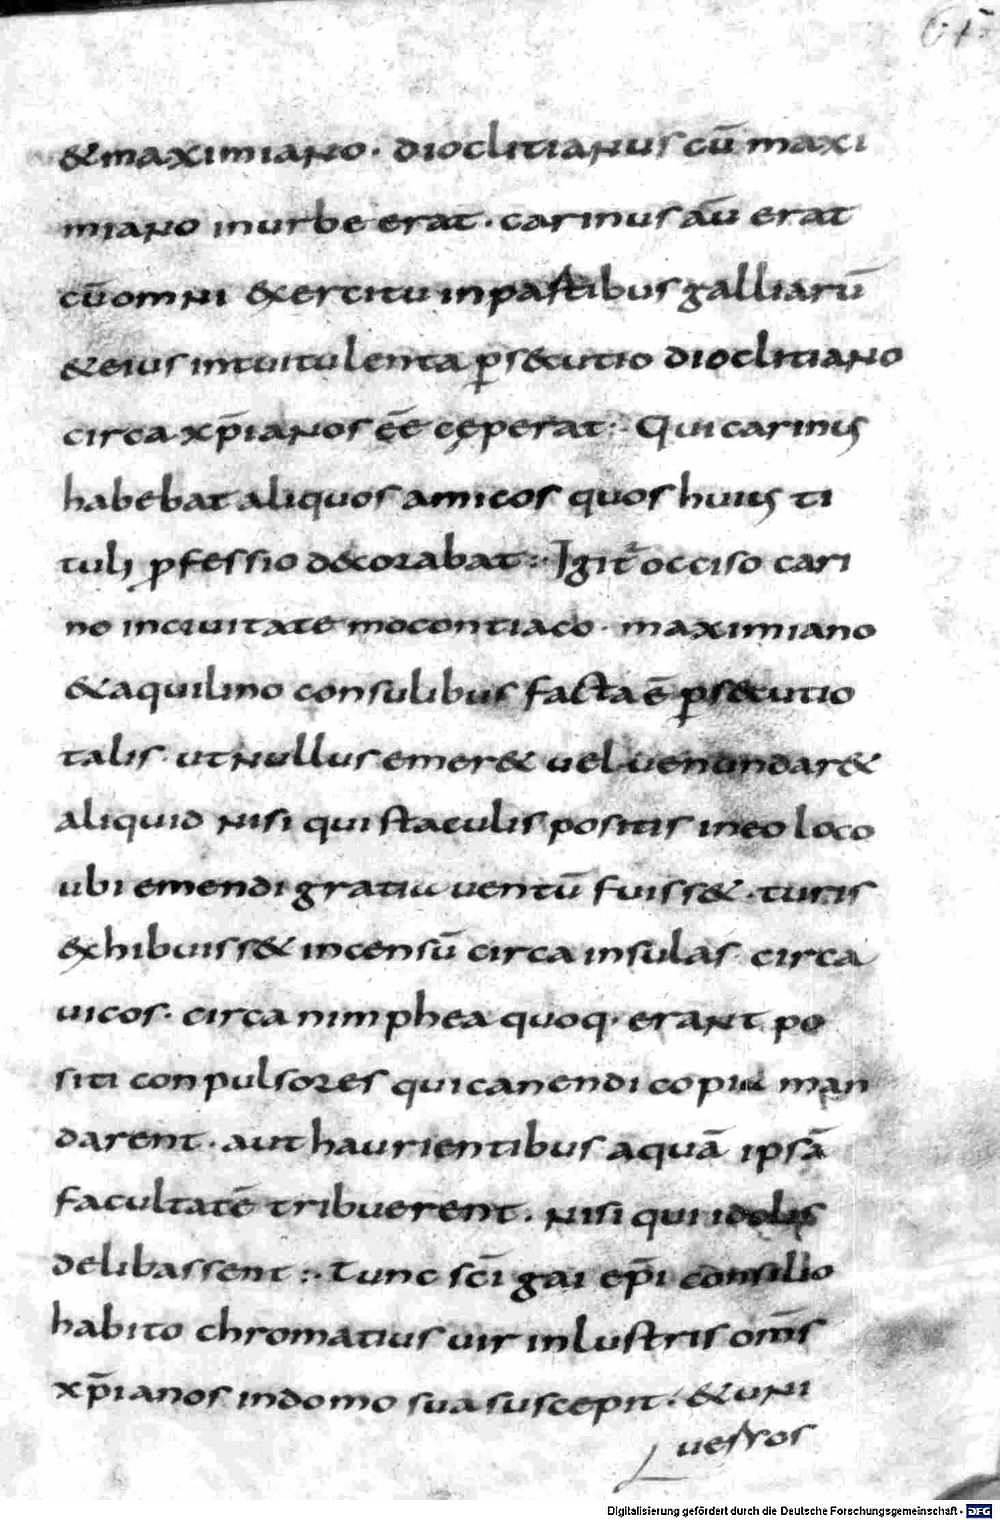 &maximiano· dioclitianus cū maxi
miano inurbe erat· carinus aū erat
cūomni &xercitu inpartibus galliarū
&eius intuitu lenta ꝑs&cutio dioclitiano
circa xp̄ianos ēē cęperat:· Qui carinus
habebat aliquos amicos quos huius ti
tuli ꝓfessio d&corabat:· Igit᷑ occiso cari
no inciuitate mocontiaco· maximiano
&aquilino consulibus facta ē ꝑs&cutio
talis· ut nullus emer& uel uenundar&
aliquid nisi qui staculis positis ineo loco
ubi emendi gratia uentū fuiss&· turis
&xhibuiss& incensū circa insulas· circa
uicos· circa nimphea quoq· erant po
siti conpulsores qui canendi copiā man
darent· aut haurientibus aquā ipsā
facultatē tribuerent· nisi qui idolis
delibassent:· Tunc sc̄i gai ep̄i consilio
habito chromatius uir inlustris om̄s
xp̄ianos indomo sua suscepit· &uni
uersos
Digitalisierung gefördert durch die Deutsche Forschungsgemeinschaft - DFG